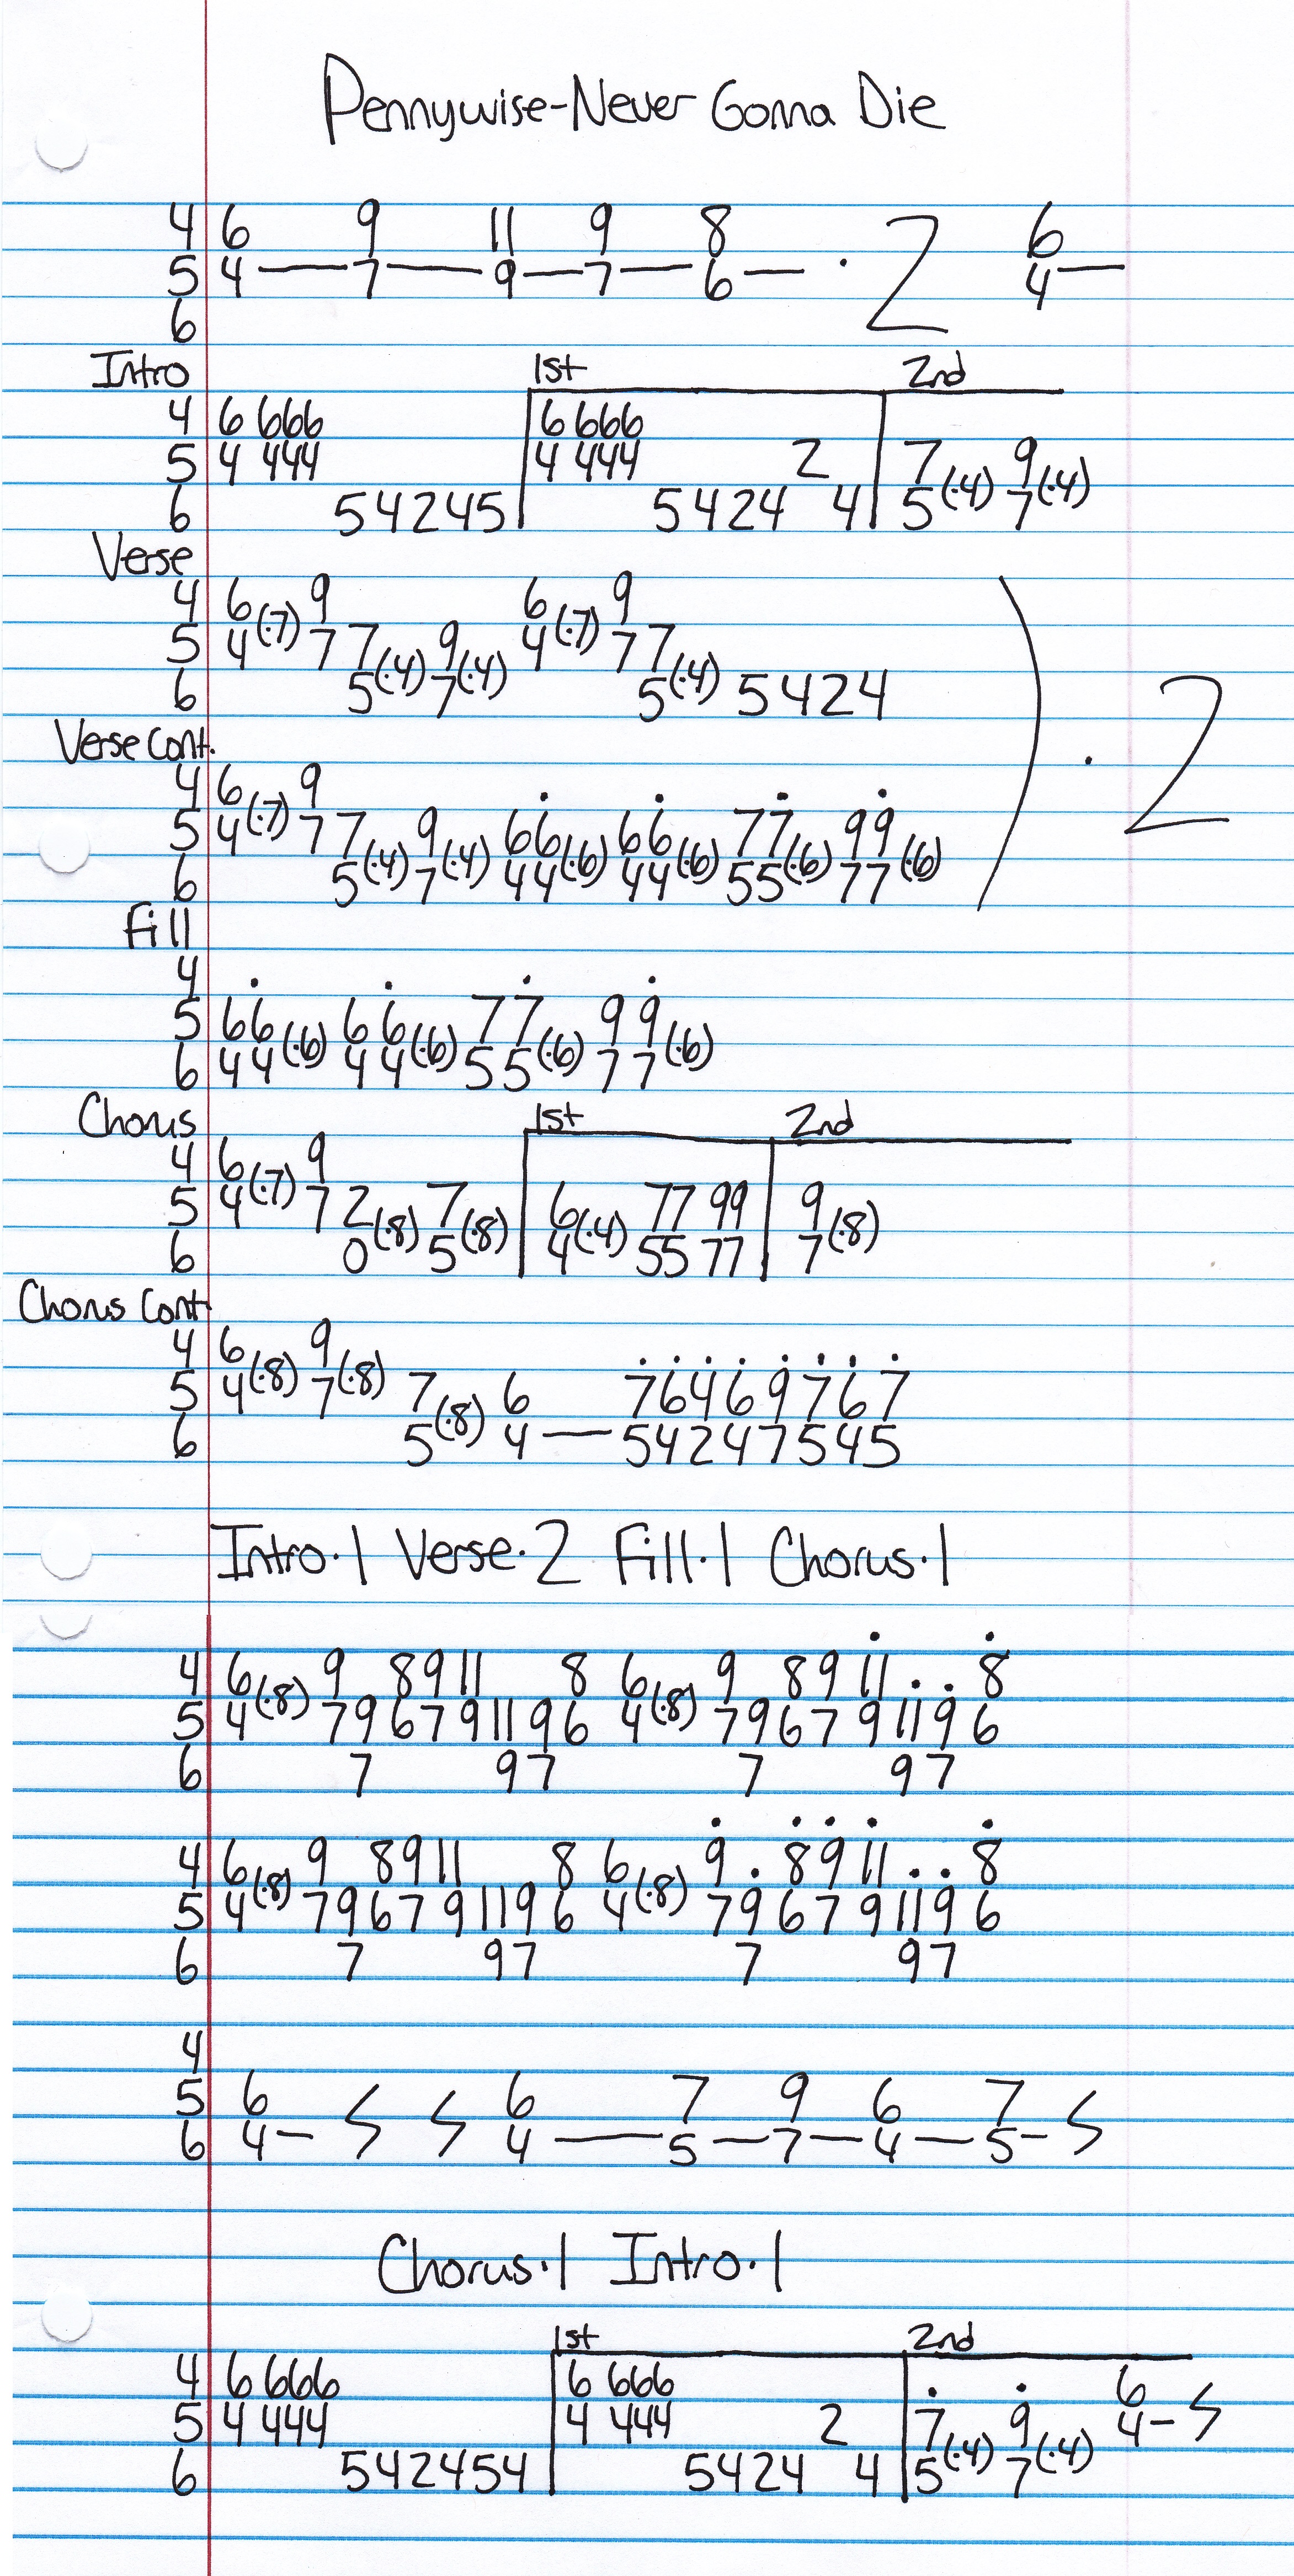 Pennywise-Never Gonna Die
4 6 9 11 9 8 6
5 4 — 7 — 9 — 7 — 6 — · 2 4 —
6
Intro 1st 2nd
4 6 666 6 666
5 4 444 4 444 2 7(·4) 9(·4)
6 542454 5424 4 5 7
Verse
4 6(·7) 9 6(·7) 9
5 4 7 7(·4) 9(·4) 4 7 7(·4)
6 5 7 5 5424 ) · 2
Verse Cont.
4 6(·7) 9
5 4 7 7(·4) 9(·4) 66(·6) 66(·6) 77(·6) 99(·6)
6 5 7 44 44 55 77
Fill
4
5 66(·6) 66(·6) 77(·6) 99(·6)
6 44 44 55 77
Chorus 1st 2nd
4 6(·7) 9
5 4 7 2(·8) 7(·8) 6(·4) 77 99 9(·8)
6 0 5 4 55 77 7
Chorus Cont
4 6(·8) 9(·8)
5 4 7 7(·8) 6 76469767
6 5 4 — 54247545
Intro·1 Verse·2 Fill·1 Chorus·1
4 6(·8) 9 8 9 11 8 6(·8) 9 8 9 11 · · 8
5 4 7 9 6 7 9 11 9 6 4 7 9 6 7 9 11 9 6
6 7 9 7 7 9 7
4 6(·8) 9 8 9 11 8 6(·8) 9 · 8 9 11 · · 8
5 4 7 9 6 7 9 11 9 6 4 7 9 6 7 9 11 9 6
6 7 9 7 7 9 7
4
5 6 6 7 9 6 7
6 4 — 4 — 5 — 7 — 4 — 5 —
Chorus·1 Intro·1
1st 2nd
4 6 666 6 666 6
5 4 444 4 444 2 7(·4) 9(·4) 4 —
6 542454 5424 4 5 7